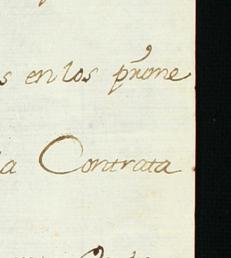 s en los prime
la Contrata